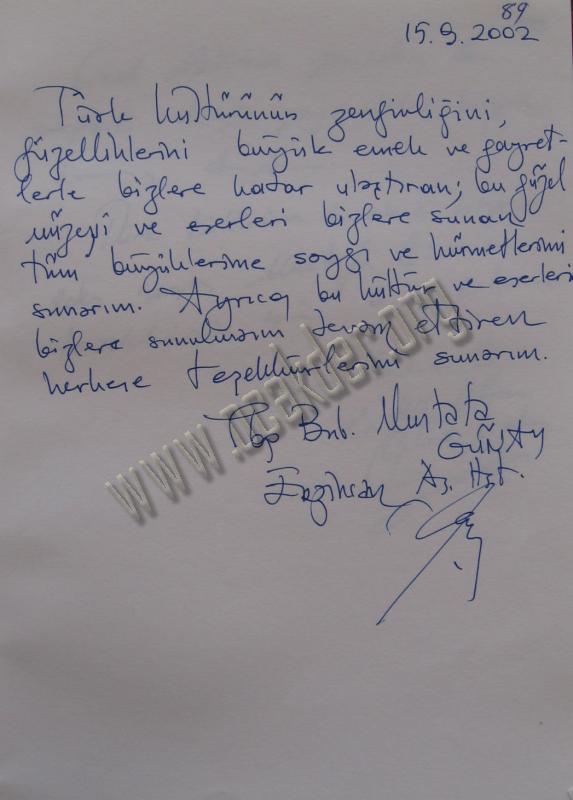 89
15.9.2002
Türk kültürünün zenginliğini,
güzelliklerini büyük emek ve gayret-
lerle bizlere kadar ulaştıran; bu güzel
müzeyi ve eserleri bizlere sunan
tüm büyüklerime saygı ve hürmetlerimi
sunarım. Ayrıca bu kültür ve eserleri
bizlere sunulmasını devam ettiren
herkese teşekkürlerimi sunarım.
Top Bnb. Mustafa
GÜNAY
Erzincan As. Hst.
www.ocakder.org